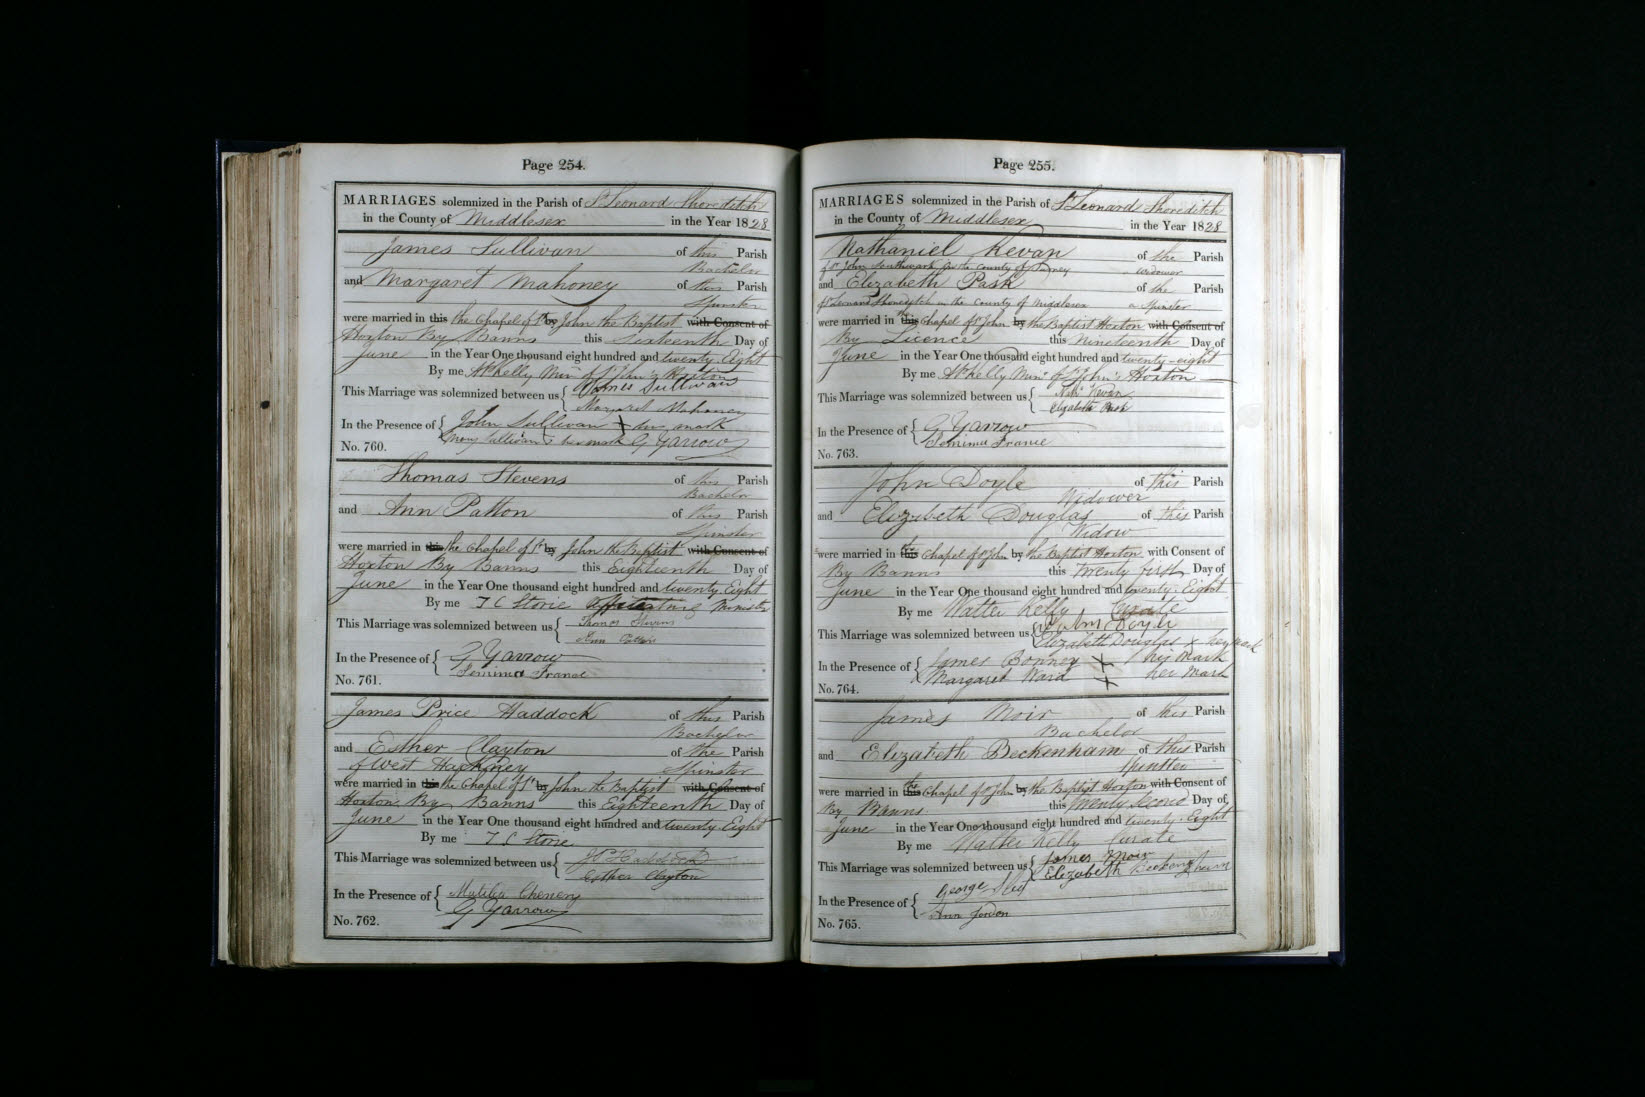 Page 254.
MARRIAGES solemnized in the Parish of St Leonard Shoreditch
in the County of Middlesex in the Year 1828
James Sullivan of this Parish
Bachelor
and Margaret Mahoney of this Parish
Spinster
were married in this the Chapel of St by John the Baptist with Consent of
Hoxton By Banns this Sixteenth Day of
June in the Year One thousand eight hundred and twenty-Eight
By me W Kelly Minr of St John's Hoxton
This Marriage was solemnized between us James Sullivan
Margaret Mahoney
In the Presence of John Sullivan + her mark
Mary Sullivan's her mark G Yarrow
No. 760.
Thomas Stevens of this Parish
Bachelor
and Ann Patton of this Parish
Spinster
were married in this the Chapel of St by John the Baptist with Consent of
Hoxton By Banns this Eighteenth Day of
June in the Year One thousand eight hundred and twenty-Eight
By me T C Storie Minister
This Marriage was solemnized between us Thomas Stevens
Ann
In the Presence of G Yarrow
Jemima France
No. 761.
James Price Haddock of this Parish
Bachelor
and Esther Clayton of the Parish
of West Hackney Spinster
were married in this the Chapel of St by John the Baptist with Consent of
Hoxton By Banns this Eighteenth Day of
June in the Year One thousand eight hundred and twenty-Eight
By me T C Storie
This Marriage was solemnized between us J P Haddock
Esther Clayton
In the Presence of Matilda Cheney
G Yarrow
No. 762.
Page 255.
MARRIAGES solemnized in the Parish of St Leonard Shoreditch
in the County of Middlesex in the Year 1828
Nathaniel Kevan of the Parish
of St John Southwark in the County of Surrey a widower
and Elizabeth Pask of the Parish
of St Leonard Shoreditch in the County of Middlesex a Spinster
were married in this the Chapel of St John by the Baptist Hoxton with Consent of
By Licence this Nineteenth Day of
June in the Year One thousand eight hundred and twenty-eight
By me W Kelly Minr of St John's Hoxton
This Marriage was solemnized between us Nath Kevan
Elizabeth Pask
In the Presence of G Yarrow
Jemima France
No. 763.
John Doyle of this Parish
Widower
and Elizabeth Douglas of this Parish
Widow
were married in this Chapel of St John by the Baptist Hoxton with Consent of
By Banns this Twenty first Day of
June in the Year One thousand eight hundred and twenty-Eight
By me Walter Kelly Curate
This Marriage was solemnized between us John Doyle
Elizabeth Douglas x her mark
In the Presence of James Bonney + his mark
Margaret Ward + her mark
No. 764.
James Moir of this Parish
Bachelor
and Elizabeth Beckenham of this Parish
Spinster
were married in this Chapel of St John by the Baptist Hoxton with Consent of
By Banns this Twenty Second Day of
June in the Year One thousand eight hundred and twenty-Eight
By me Walter Kelly Curate
This Marriage was solemnized between us James Moir
Elizabeth
In the Presence of George
Ann Jordon
No. 765.